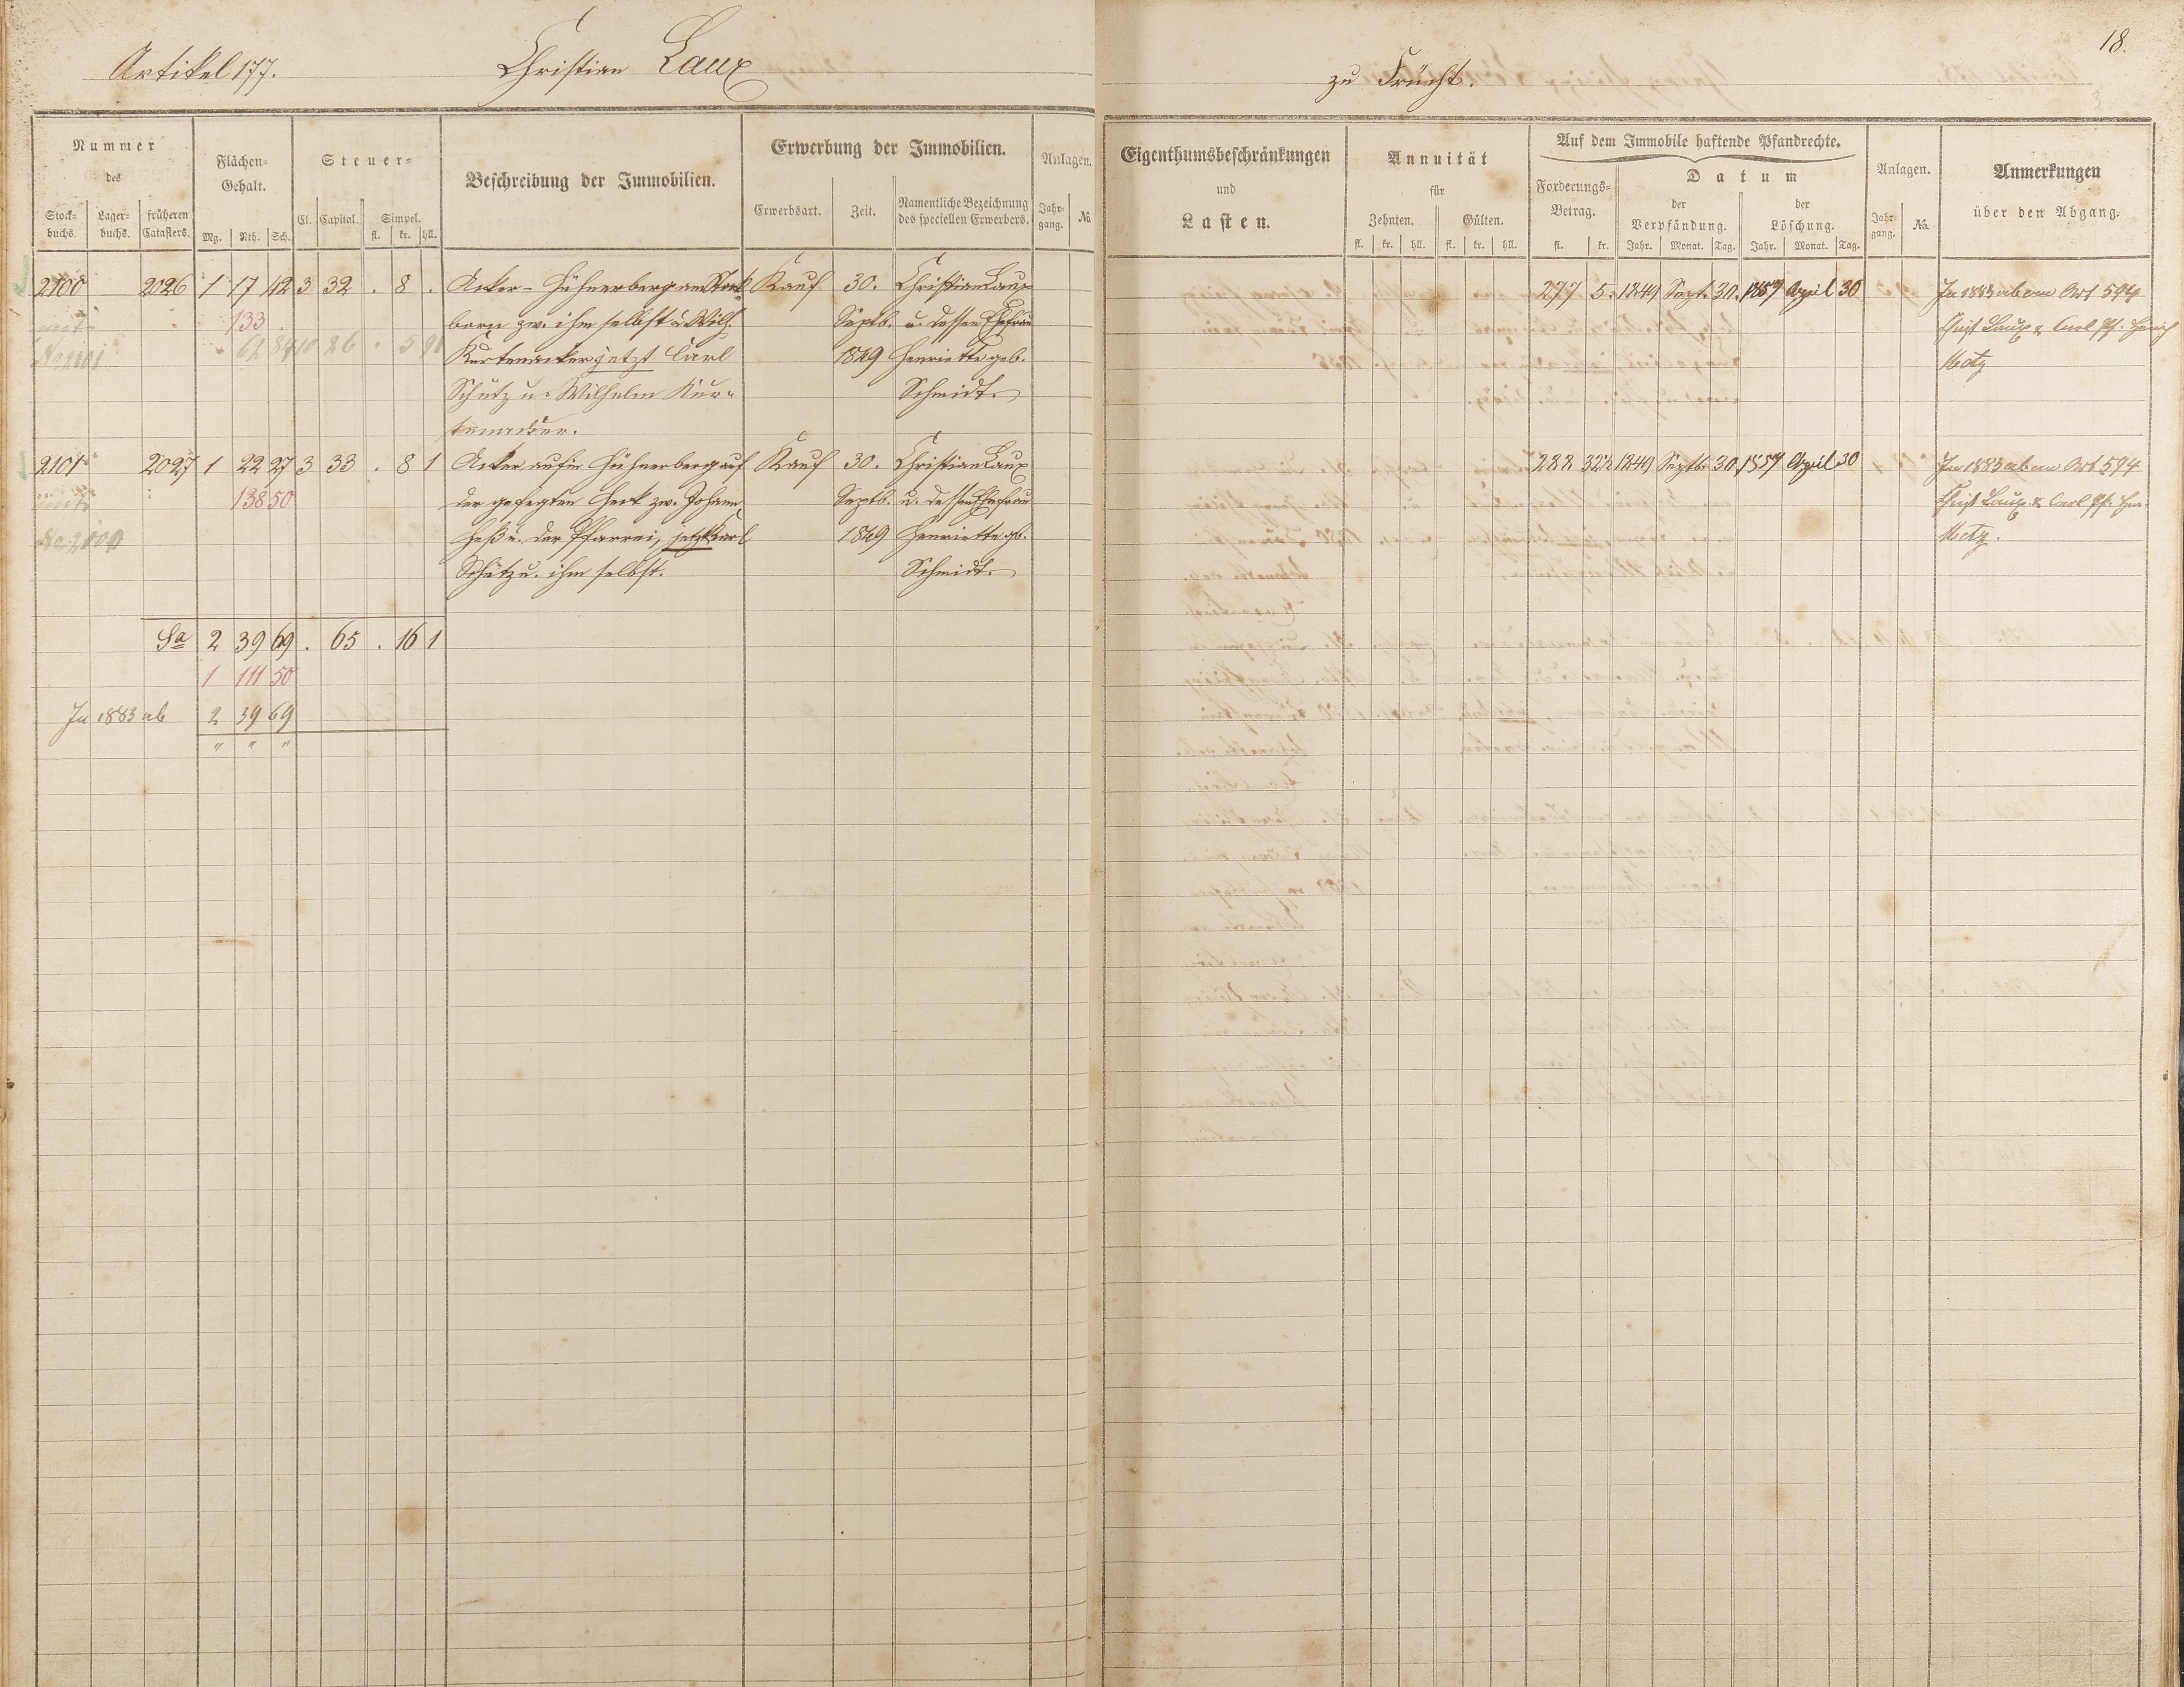 Artikel 177.
Christian Laux
zu Frücht.
18.
Nummer
des
Stock-
buchs.
Lager-
buchs.
früheren
Catasters.
Flächen-
Gehalt.
Mg. Rth. Sch.
Steuer-
Cl. Capital. Simpel.
fl. kr. hll.
Beschreibung der Immobilien.
Erwerbung der Immobilien.
Erwerbsart. Zeit. Namentliche Bezeichnung
des speciellen Erwerbers.
Anlagen.
Jahr-
gang.
No.
Eigenthumsbeschränkungen
und
Lasten.
Annuität
für
Zehnten. Gülten.
fl. kr. hll. fl. kr. hll.
Auf dem Immobile haftende Pfandrechte.
Forderungs-
Betrag.
fl. kr.
Datum
der
Verpfändung.
Jahr. Monat. Tag.
der
Löschung.
Jahr. Monat. Tag.
Anlagen.
Jahr-
gang.
No.
Anmerkungen
über den Abgang.
2100 2026 1 17 42 3 32 . 8 . Acker - Hühnerberg am Stock Kauf 30. Christian Laux 277 5. 1849 Sept. 30. 1859 April 30 In 1883 ab am Art 594
133 born zw. ihm selbst u. Wilh. Septb. u. dessen Ehefrau Christ Laux &amp; Carl
Kurtenacker jetzt Carl 1849 Henriette geb. Metz
Schütz u. Wilhelm Kur-
Schmidt.
tenacker.
2101 2027 1 22 27 3 33 . 8 1 Acker auf'm Hühnerberg auf Kauf 30. Christian Laux 288 32½ 1849 Septb. 30. 1859 April 30 In 1883 ab am Art 594
138 50 der gefegten Heck zw. Johann Septb. u. dessen Ehefrau Christ Laux &amp; Carl
Heß u. der Pfarrei, jetzt Karl 1849 Henriette geb. Metz.
Schütz u. ihm selbst. Schmidt.
Sa 2 39 69 . 65 . 16 1
1 111 50
In 1883 ab 2 39 69
" " "